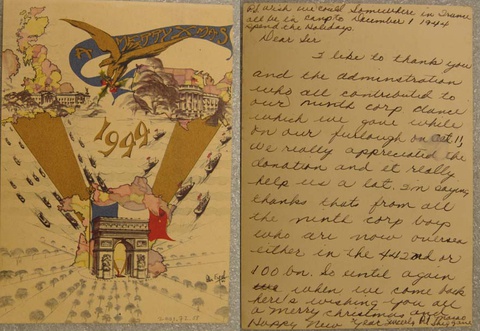 A MERRY X-MAS
1944
2003.82.18
I wish we could
all be in camp to
spend the holidays.
Somewhere in France
December 1 1944
Dear Sir
I like to thank you
and the adminstration
who all contributed to
our ninth corp dance
which we gave while
on our furlough on Oct 11
We really appreciated the
donation and it really
help us a lot. Im saying
thanks that from all
the ninth corp boys
who are now oversea
either in the 442nd or
100 bn. So until again
when we come back
here's wishing you all
a merry christmas and
Happy New Year